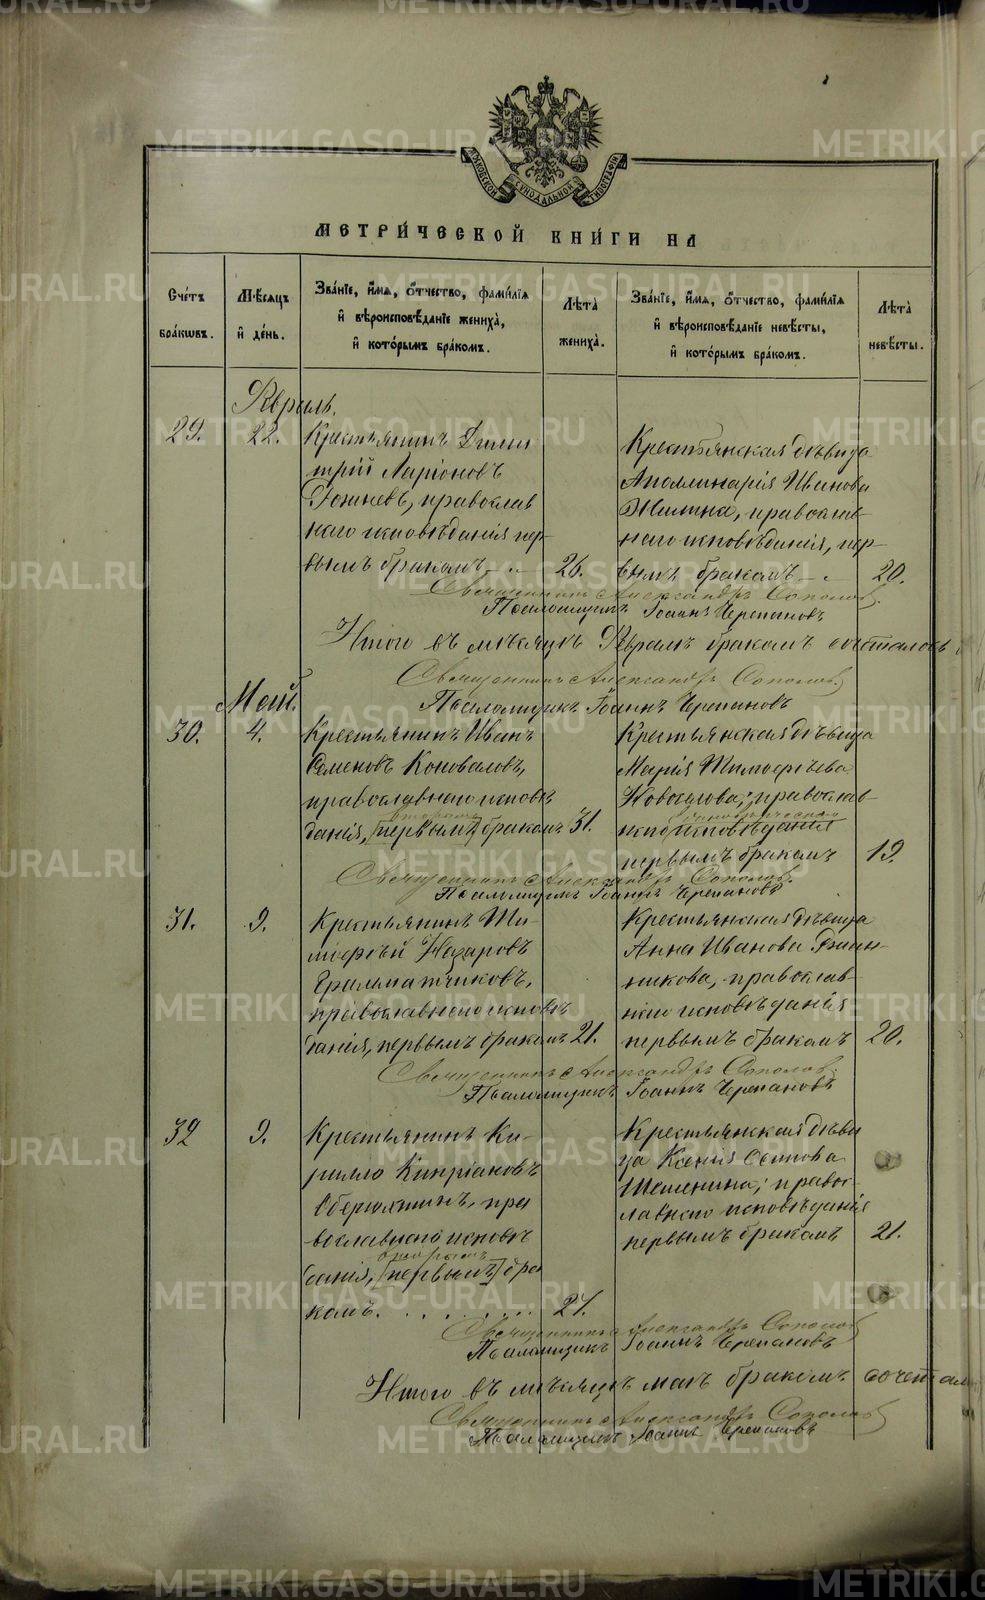 МОСКОВСКОЙ СѴНОДАЛЬНОЙ ТИПОГРАФІИ
МЕТРИ́ЧЕСКОЙ КНИ́ГИ НА
Сче́тъ бра́ковъ.
Мѣ́сяцъ и де́нь.
Зва́ніе, и́мя, о́тчество, фами́лія и вѣроисповѣ́даніе жениха̀, и кото́рымъ бра́комъ.
Лѣ́та жениха̀.
Зва́ніе, и́мя, о́тчество, фами́лія и вѣроисповѣ́даніе невѣ́сты, и кото́рымъ бра́комъ.
Лѣ́та невѣ́сты.
Февраль.
29.
22.
Крестьянинъ Дими
трій Ларіоновъ
православ
наго исповѣданія пер-
вымъ бракомъ
26.
Крестьянская дѣвица
Аполлинарія Иванова
Жилина, православ-
наго исповѣданія, пер-
вымъ бракомъ
20.
Священникъ Александръ Соколов
Псаломщикъ Іоаннъ Черепановъ
Итого въ мѣсяцѣ Февралѣ бракомъ сочеталось
Священникъ Александръ Соколов
Псаломщикъ Іоаннъ Черепановъ
Май.
30.
4.
Крестьянинъ Иван
Семеновъ Коноваловъ,
православнаго исповѣ
вторымъ
данія, [первымъ] бракомъ
31.
Крестьянская дѣвица
Марія Тимофѣева
Новоселова, православ-
наго исповѣданія
первымъ бракомъ
19.
Священникъ Александръ Соколов.
Псаломщикъ Іоаннъ Черепановъ
31.
9.
Крестьянинъ Ти-
мофѣй Назаровъ
Грамматчиковъ,
православнаго исповѣ
данія, первымъ бракомъ
21.
Крестьянская дѣвица
Анна Иванова
никова, православ-
наго исповѣданія
первымъ бракомъ
20.
Священникъ Александръ Соколов.
Псаломщикъ Іоаннъ Черепановъ
32
9.
Крестьянинъ Ки-
рилло Кипріановъ
Оберюхтинъ, пра
вославнаго исповѣ
вторымъ
данія, [первымъ] бра
комъ.
27.
Крестьянская дѣви
ца Ксенія Осипова
Шеленина, правос
лавнаго исповѣданія
первымъ бракомъ
21.
Священникъ Александръ Соколов
Псаломщикъ Іоаннъ Черепановъ
Итого въ мѣсяцѣ маѣ бракомъ сочетал
Священникъ Александръ Соколов
Псаломщикъ Іоаннъ Черепановъ
METRIKI.GASO-URAL.RU